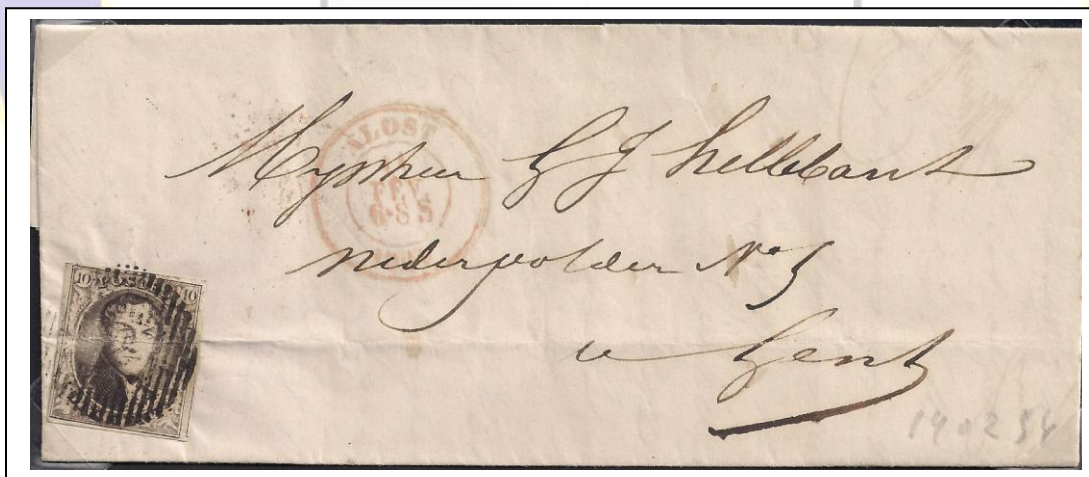 ALOST
FEV
6·8 S
Mynheer G J hellebaut
nederpolder No 5
a Gent
10 POSTES 10
140254